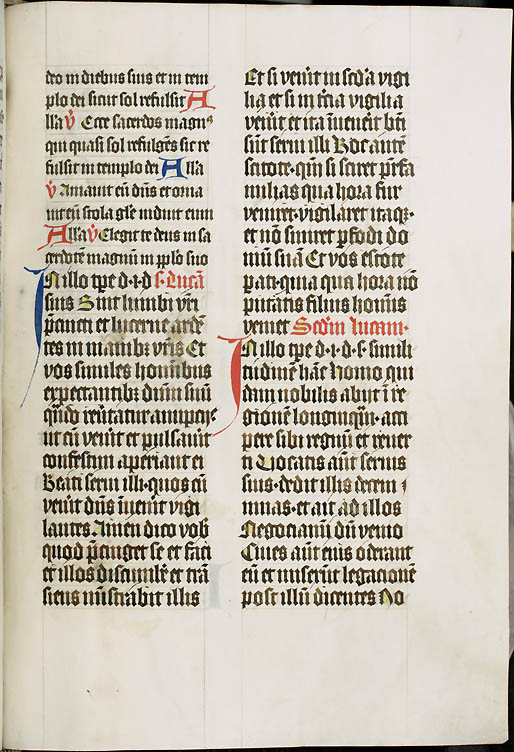 deo in diebus suis et in tem
plo dei sicut sol refulsit A
lla v̄ Ecce sacerdos magnꝰ
qui quasi sol refulgēs sic re
fulsit in templo dei Alla
v̄ Amauit eū dn̄s et orna
uit eū stola gl̄e induit eum
Alla v̄ Elegit te deus in sa
cerdotē magnum in pplo suo
In illo tp̄e d·i·d s· Lucā
suis Sint lumbi vr̄i
p̄cincti et lucerne ardē
tes in manibꝫ vr̄is Et
vos similes hominibus
expectantibꝫ dn̄m suū
qn̄do reu̇tatur a nupcijs
ut cū venīt et pulsauīt
confestim aperiant ei
Beati serui illi·quos cū
venīt dn̄s inuenīt vigi
lantes Amen dico vob̄
quod p̄cinget se et faci
et illos discumbe̅ et trā
siens mīstrabit illis
Et si venīt in scd̄a vigi
lia et si in t̄cia vigilia
venīt et ita inuenīt bt̄i
sūt serui illi Hoc autē
scitote·qm̄ si sciret pr̄fa
milias qua hora fur
veniret·vigilaret itaqꝫ·
et nō sineret ꝑfodi do
mū suā Et vos estote
pati·quia qua hora nō
putatis filius hominis
veniet Scd̄m Lucam·
In illo tp̄e d·i·d·s· simili
tudinē hāc Homo qui
dam nobilis abijt ī re
gionē longinqūa·acci
pere sibi regnū et reuer
ti Vocatis aūt seruis
suis·dedit illis decem
mnas·et ait ad illos
Negociamī dū venio
Ciues aūt eius oderant
eū et miserūt legacionē
post illū dicentes No